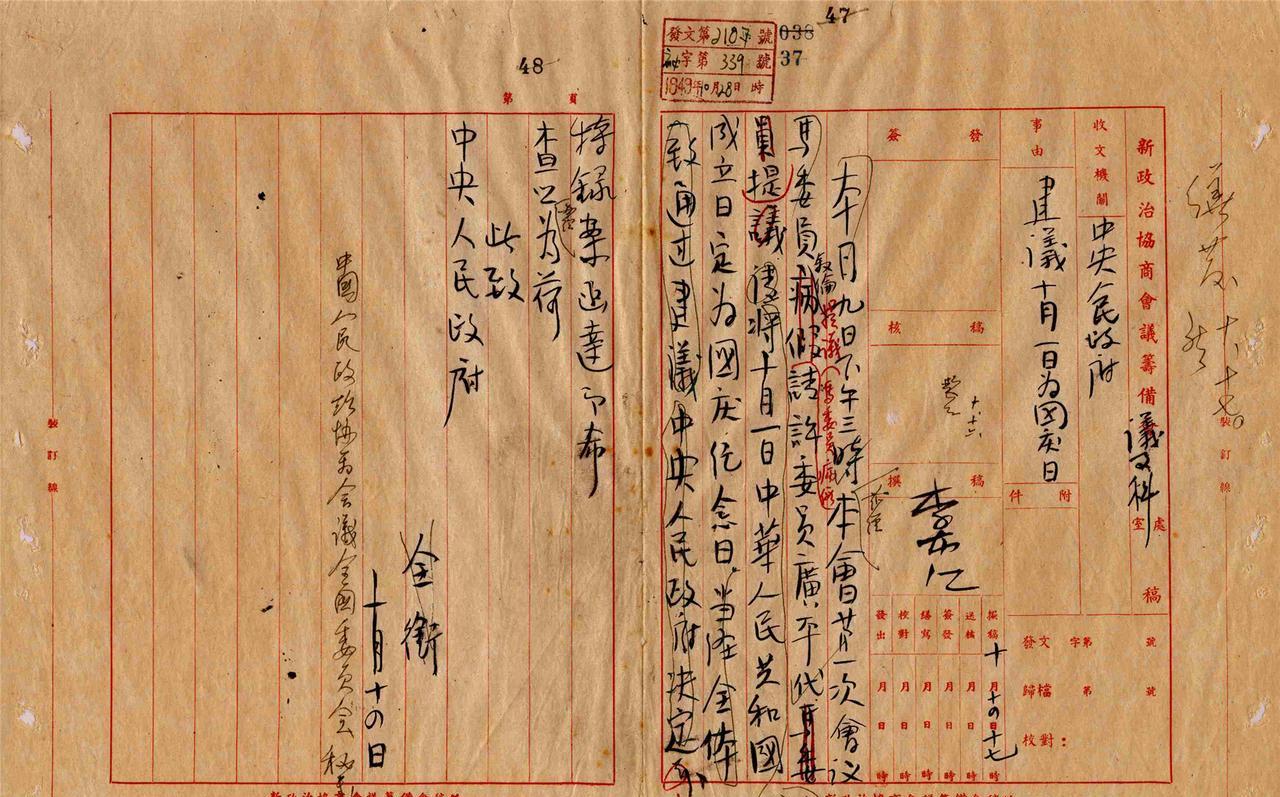 47
發文第218号號
字第339號
1949年10月28日時
038
37
48
第 頁
新政治協商會議籌備 處室 稿
收文機關
中央人民政府
事由
建議十月一日为国庆日
附件
簽發
核稿
撰稿
十.十六
發文 字第 號
歸檔 第 號
校對：
撰稿 十月十四日十七時
送核 月 日 時
簽發 月 日 時
繕寫 月 日 時
校對 月 日 時
發出 月 日 時
本十月九日下午三時本會
第一次會议
馬委員
病假請許委員廣平代
員提議
將十月一日中華人民共和國
成立日定为國庆纪念日
當經全体
致通过建議中央人民政府決定
特録案函達即希
查照为荷
此致
中央人民政府
全銜
十月十四日
中國人民政治协商会議全國委員会秘
裝訂線
裝訂線